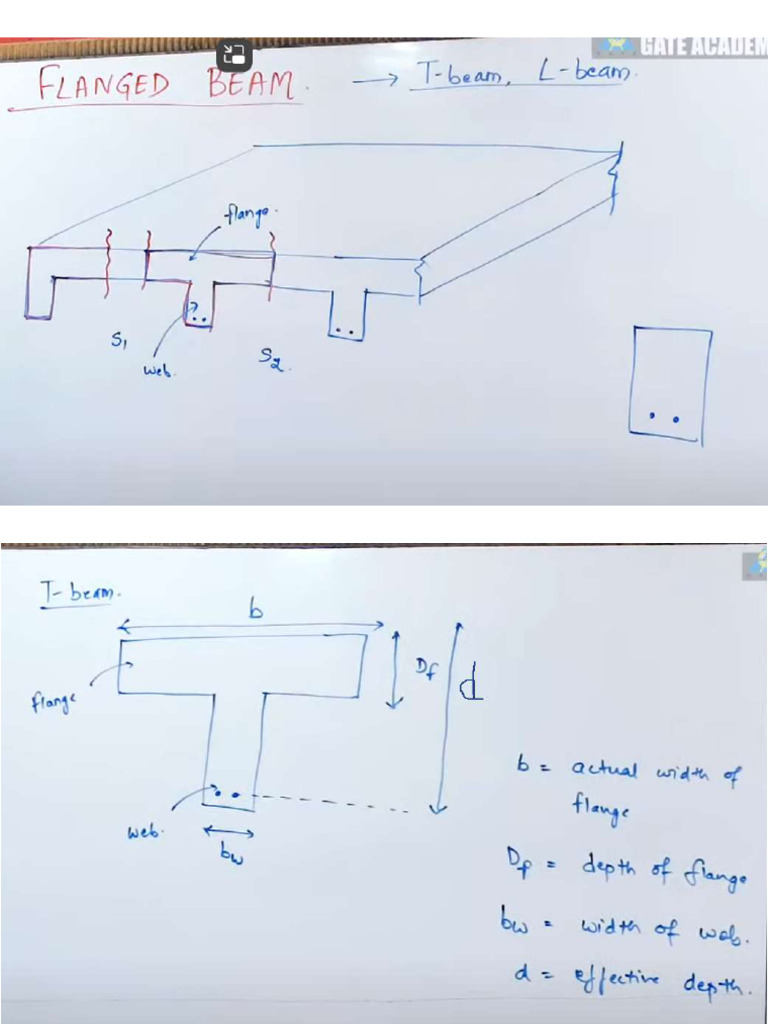 GATE ACADEM
FLANGED BEAM. → T-beam, L-beam.
flange.
S1
web.
S2.
T-beam.
b
Df
d
flange
web.
bw
b = actual width of
flange
Df = depth of flange
bw = width of web.
d = effective depth.